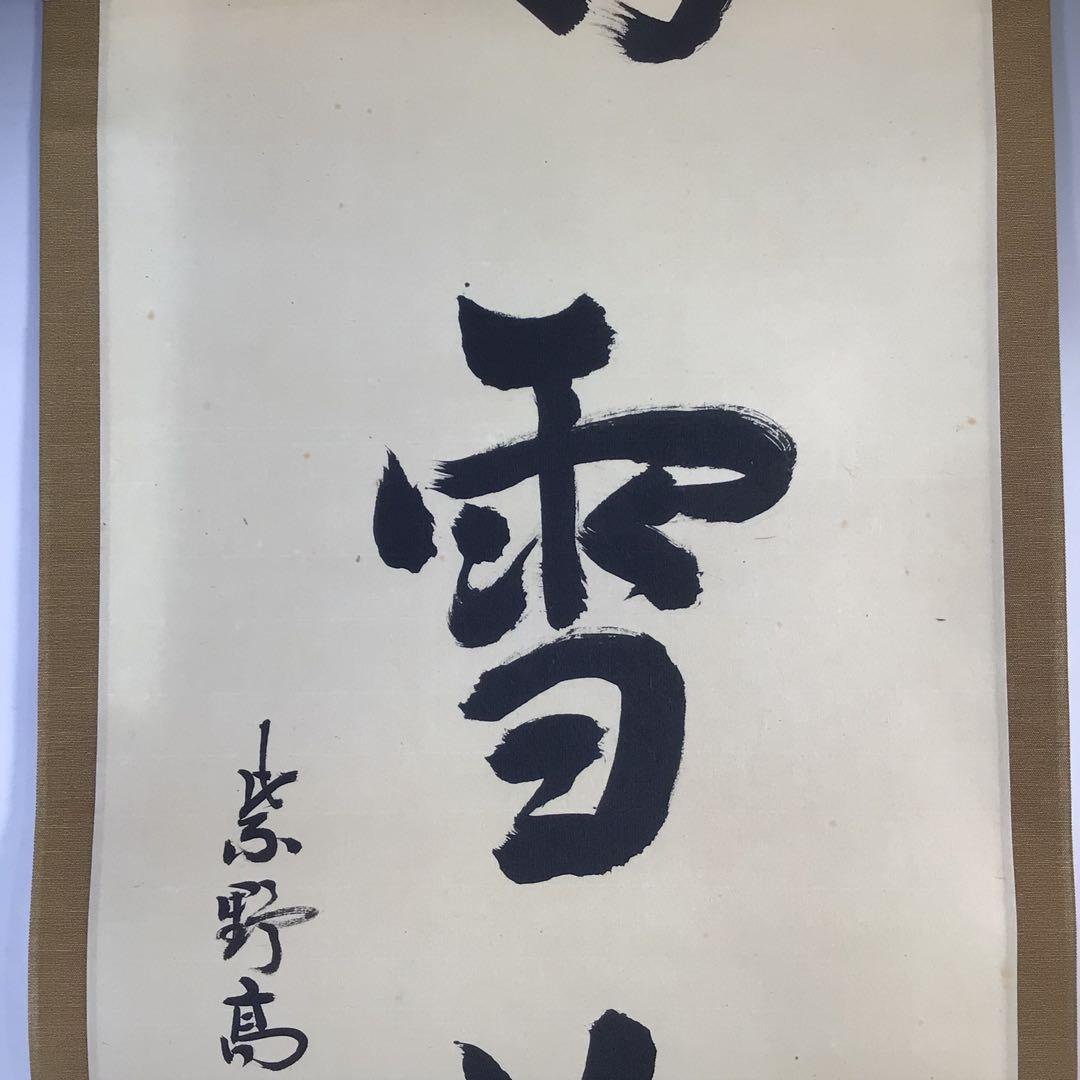 雪
紫野高